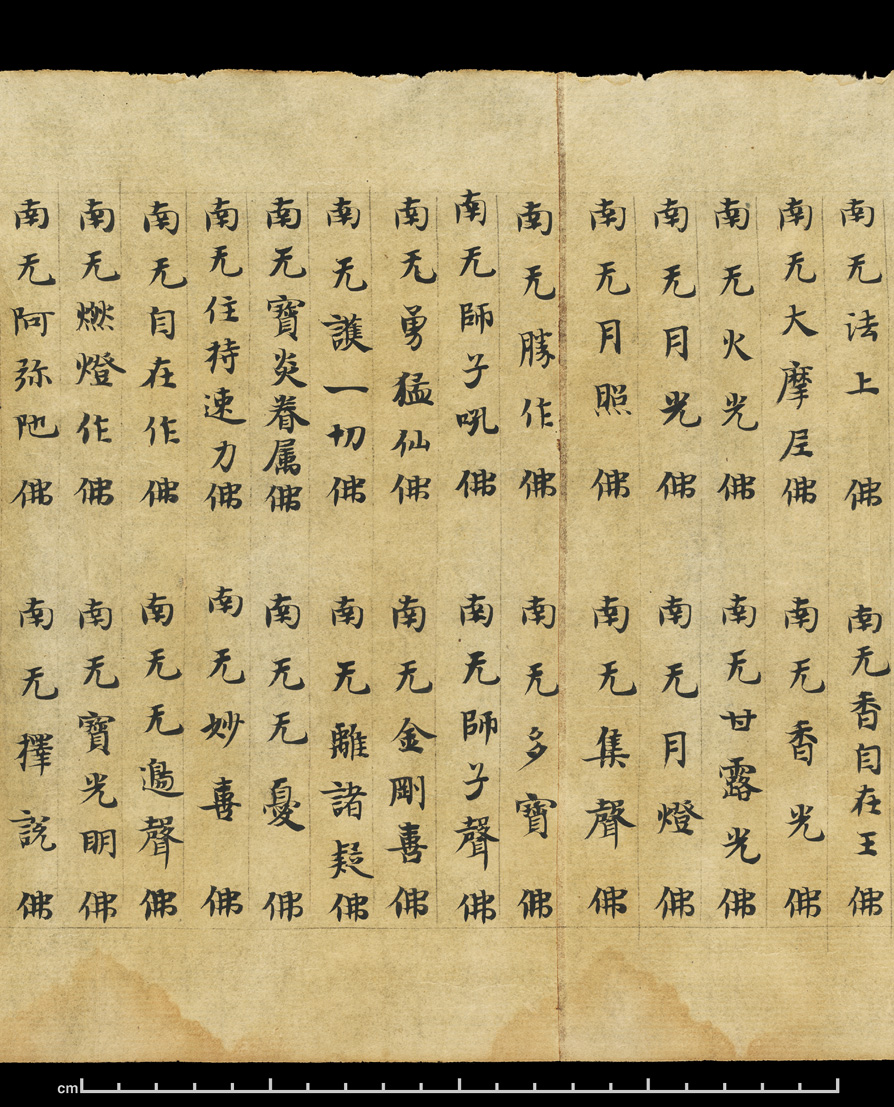 南无法上佛 南无香自在王佛
南无大摩尼佛 南无香光佛
南无火光佛 南无甘露光佛
南无月光佛 南无月燈佛
南无月照佛 南无集聲佛
南无勝作佛 南无多寶佛
南无師子吼佛 南无師子聲佛
南无勇猛仙佛 南无金剛喜佛
南无護一切佛 南无離諸疑佛
南无寶炎眷属佛 南无无憂佛
南无住持速力佛 南无妙喜佛
南无自在作佛 南无无邊聲佛
南无燃燈作佛 南无寶光明佛
南无阿弥陁佛 南无擇説佛
cm